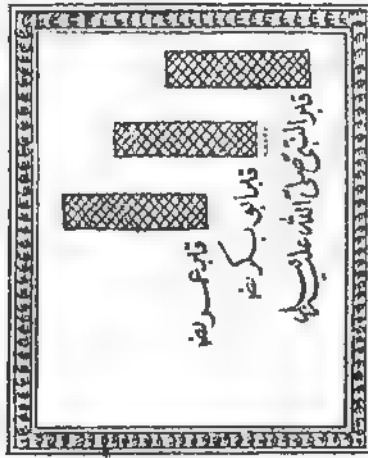 قبر النبی صلی اللہ علیہ وسلم
قبر ابو بکر رضہ
قبر عمر رضہ